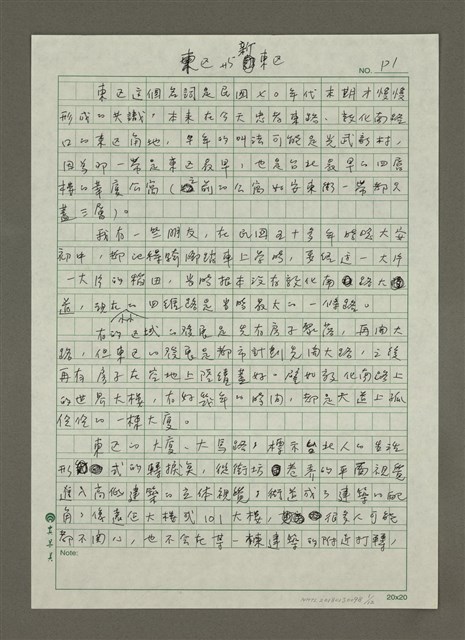 東區 vs 新東區
NO. P1
東區這個名詞是民國七〇年代末期才慢慢
形成的共識，本來在今天忠孝東路、敦化南路
口的東區角地，早年的叫法可能是光武新村，
因為那一帶是東區最早，也是台北最早的四層
樓的華廈公寓（之前的公寓如安東街一帶都只
蓋三層）。
我有一些朋友，在民國五十多年時唸大安
初中，都記得騎腳踏車上學時，要經過一大片
一大片的稻田，當時根本沒有敦化南路大
道，現在的田經路是當時最大的一條路。
有的區域的發展是先有房子聚落，再開大
路，但東區的發展是都市計劃先開大路，之後
再有房子在空地上陸續蓋好。譬如敦化南路上
的世界大樓，有好幾年的時間，都是大道上孤
伶伶的一棟大廈。
東區的大廈、大馬路，標示台北人的生活
形式的轉捩點，從街坊巷弄的平面視覺
進入高樓建築的立體視覺，街道成了建築的配
角，像高住大樓或101大樓，很多人可能
都不開心，也不會在某一棟建築的附近打轉，
Note:
20x20